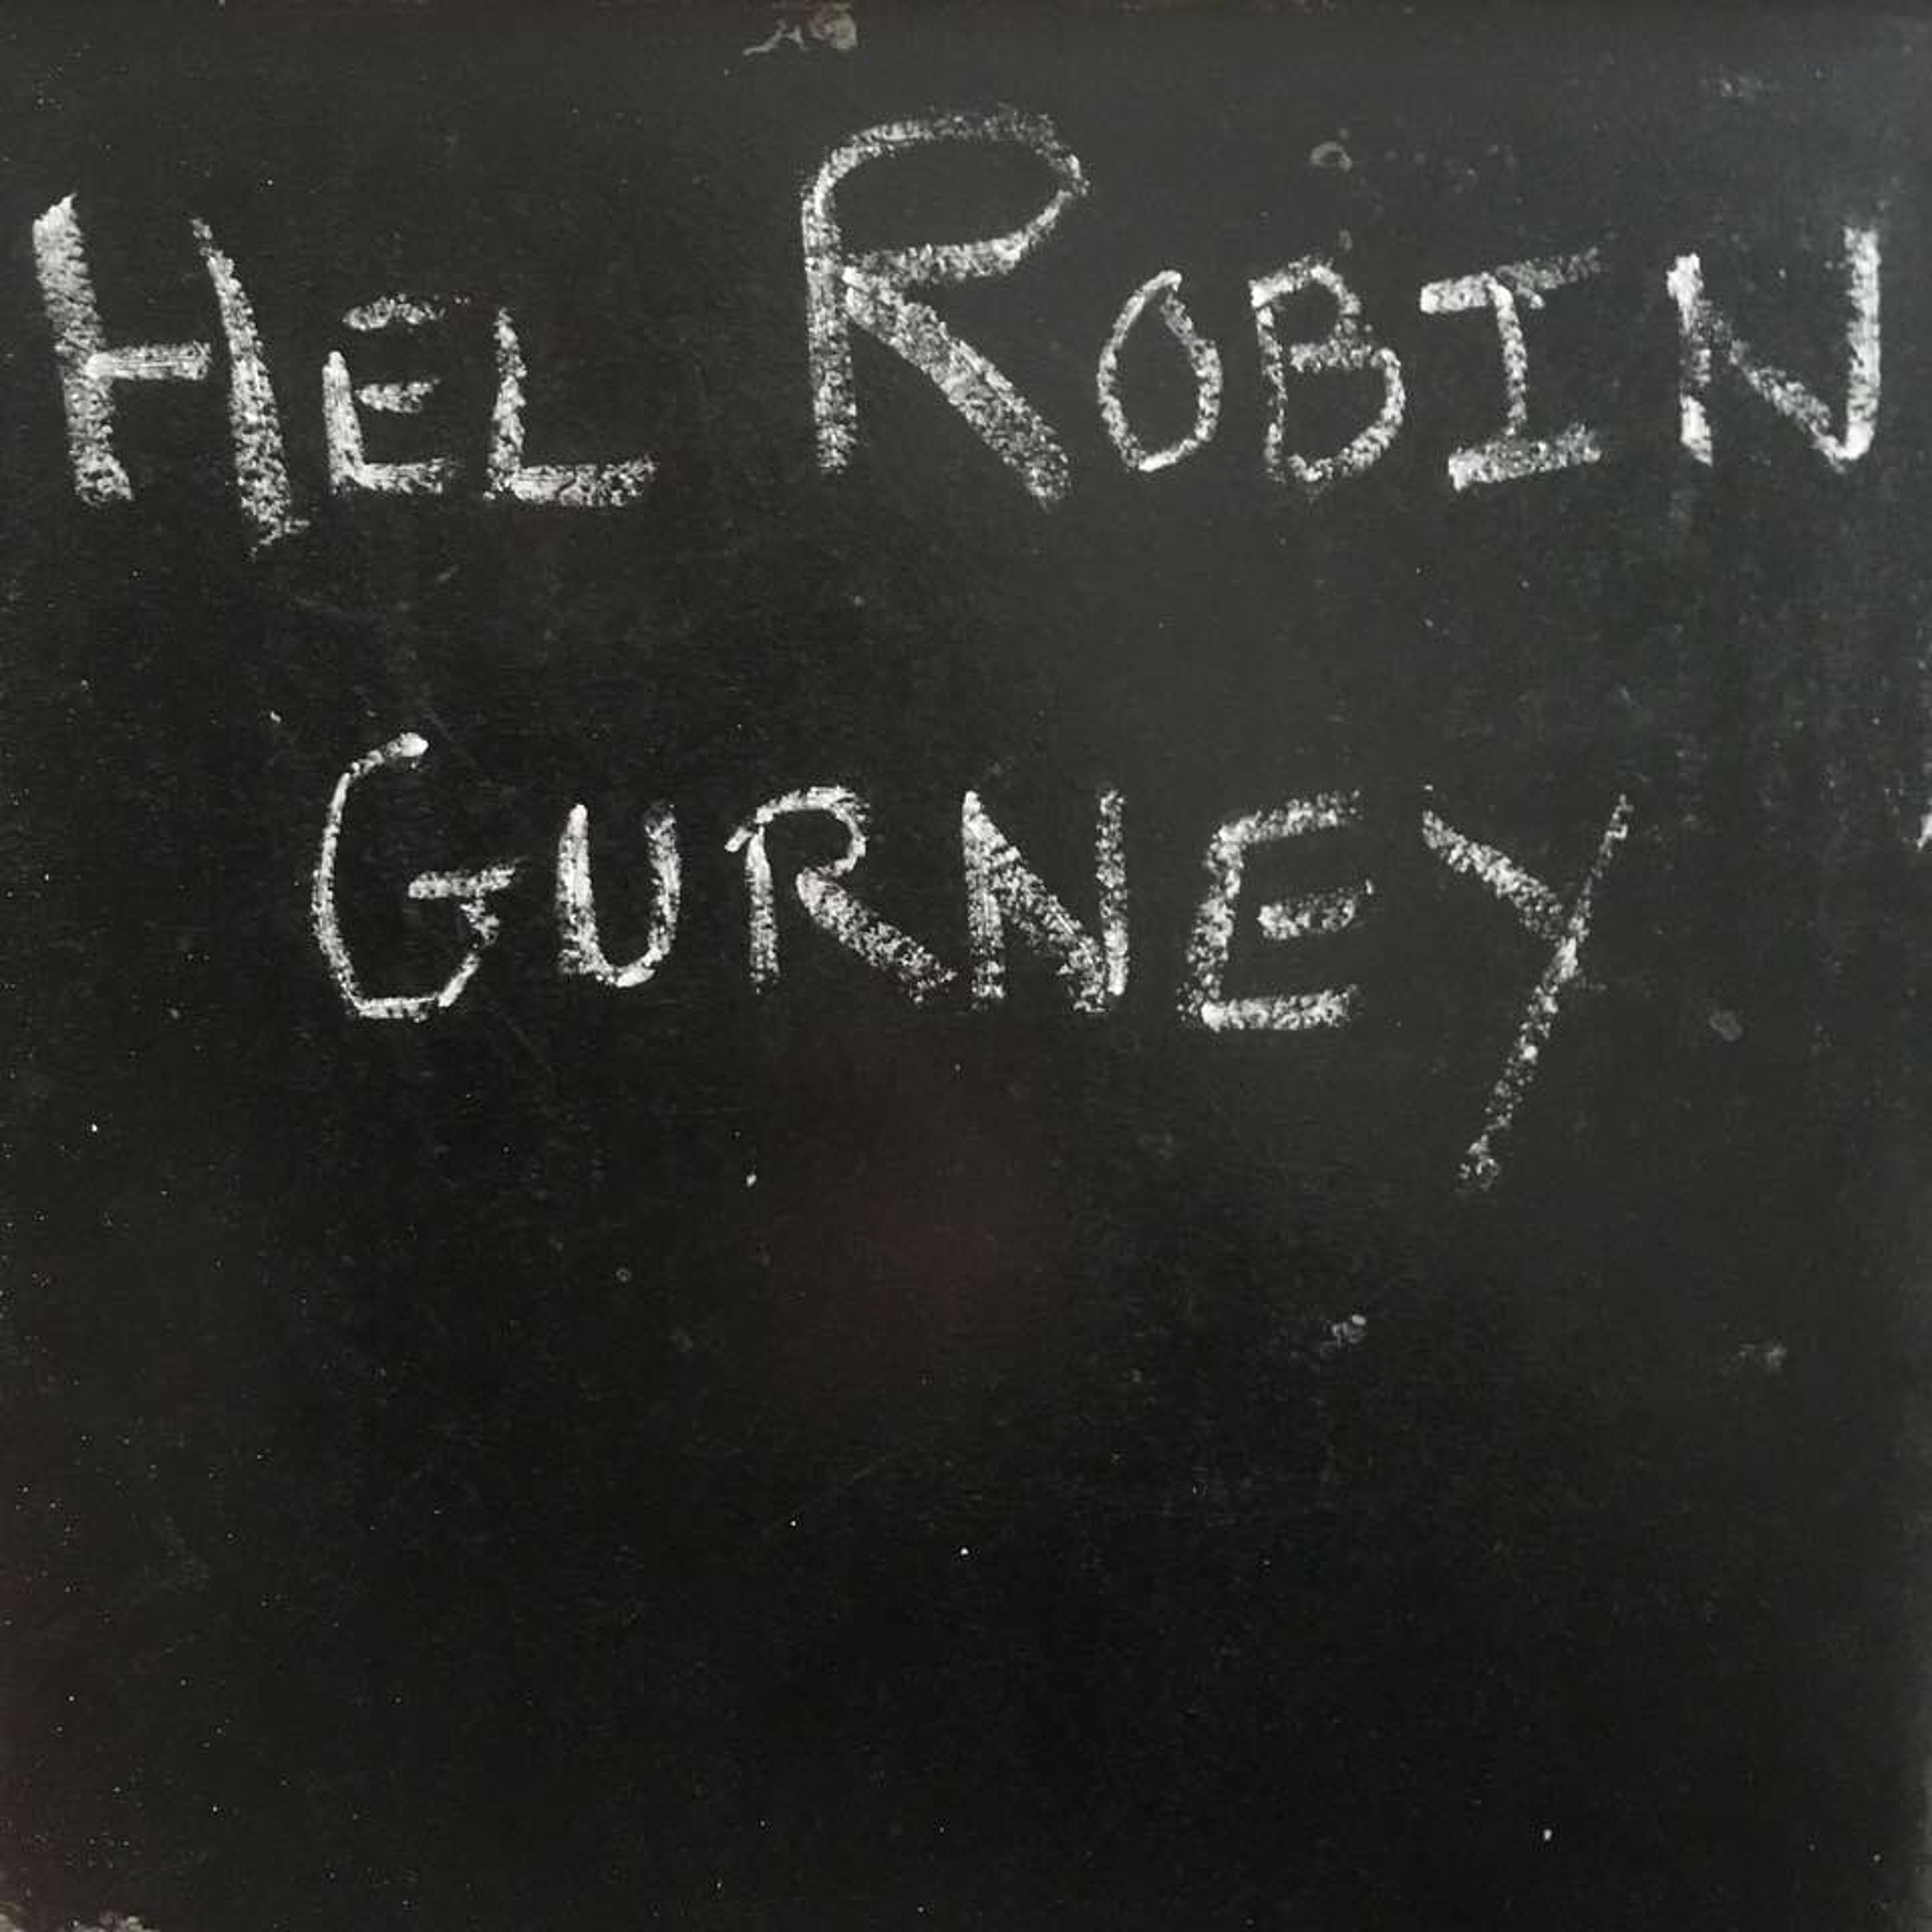 HEL ROBIN
GURNEY